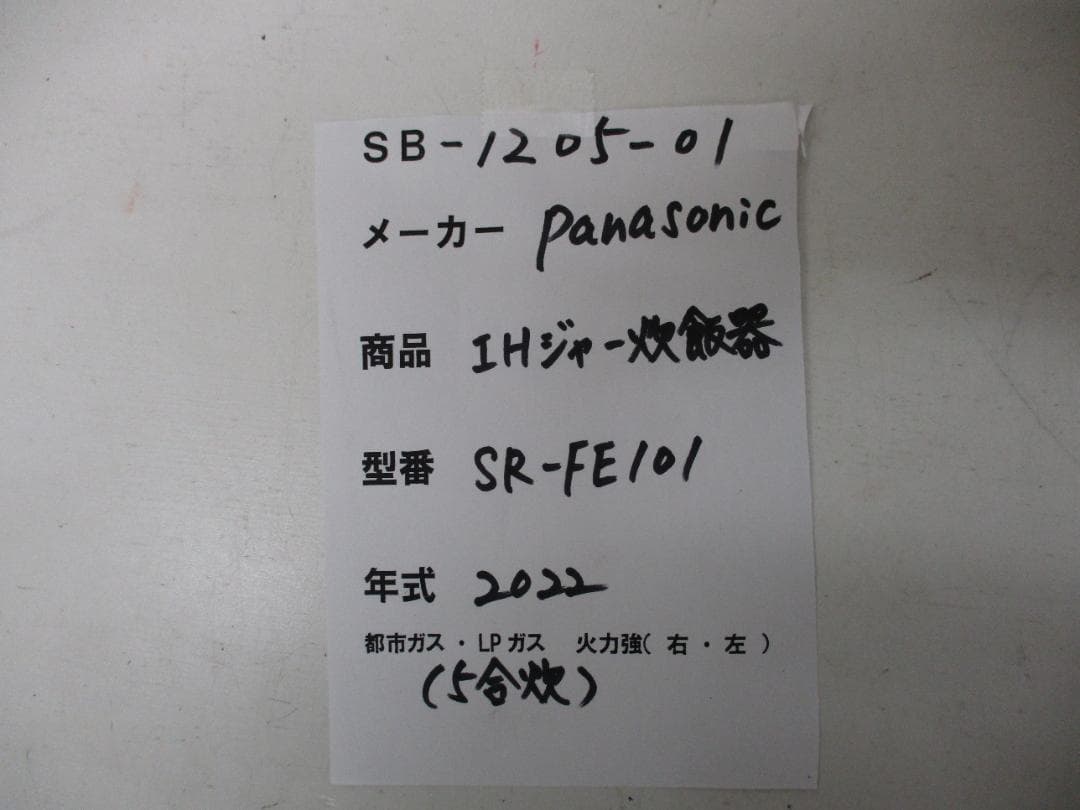 SB-1205-01
メーカー Panasonic
商品 IHジャー炊飯器
型番 SR-FE101
年式 2022
都市ガス・LPガス 火力強(右・左)
(5合炊)